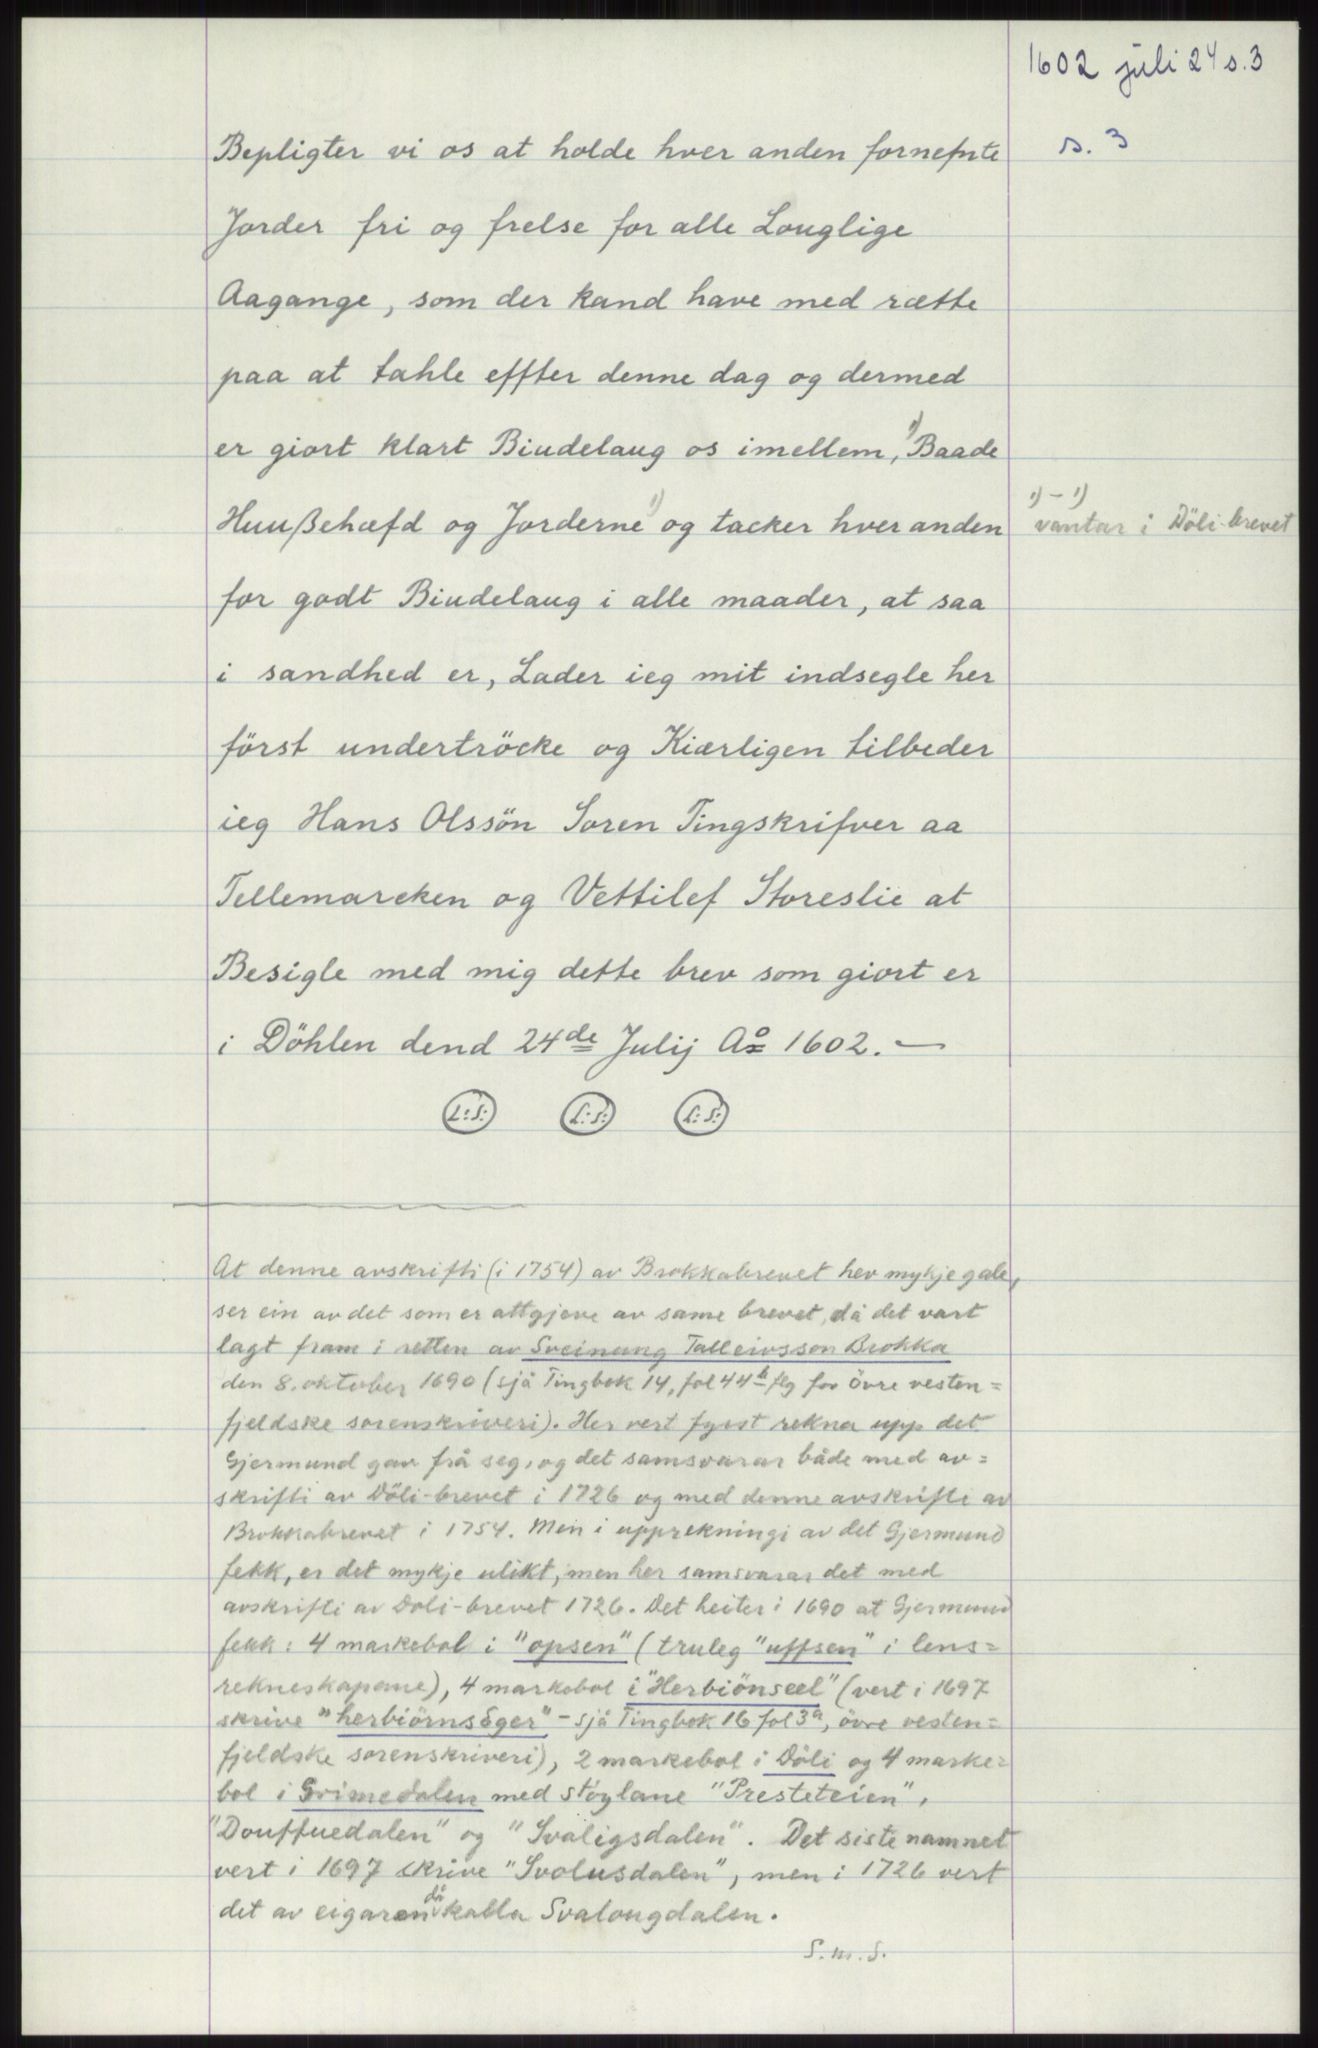 1602 juli 24 s. 3
s. 3
Bepligter vi os at holde hver anden fornefnte
Jorder fri og frelse for alle Louglige
Aagange, som der kand have med rætte
paa at tahle effter denne dag og dermed
er giort klart Biudelaug os imellem, 1) Baade
Huußehæfd og Jorderne 1) og tacker hver anden
1) - 1)
vantar i Döli-brevet
for godt Biudelaug i alle maader, at saa
i sandhed er, Lader ieg mit indsegle her
först undertröcke og Kiærligen tilbeder
ieg Hans Olssön Soren Tingskrifver aa
Tellemarcken og Vettilef Storeslie at
Besigle med mig dette brev som giort er
i Döhlen dend 24de Julij Ao 1602. —
L:S: L:S: L:S:
At denne avskrifti (i 1754) av Brokkabrevet hev mykje gale,
ser ein av det som er attgjeve av same brevet, då det vart
lagt fram i retten av Sveinung Talleivsson Brokka
den 8. oktober 1690 (sjå Tingbok 14, fol 44b flg for övre vesten=
fjeldske sorenskriveri). Her vert fyrst rekna upp det
Gjermund gav frå seg, og det samsvarar både med av=
skrifti av Döli-brevet i 1726 og med denne avskrifti av
Brokkabrevet i 1754. Men i upprekningi av det Gjermund
fekk, er det mykje ulikt, men her samsvarar det med
avskrifti av Doli-brevet 1726. Det heiter i 1690 at Gjermund
fekk: 4 markebol i "opsen" (truleg "uffsen" i lens=
rekneskapane), 4 markebol i "Herbiönseel" (vert i 1697
skrive "herbiörnsöger" - sjå Tingbok 16 fol 3a, övre vesten=
fjeldske sorenskriveri), 2 markebol i Döli og 4 marke=
bol i Grimedalen med stöylane "Presteteien",
"Douffuedalen" og "Svaligsdalen". Det siste namnet
vert i 1697 skrive "Svolusdalen", men i 1726 vert
det av eigaren då kalla Svalougdalen.
S. m. S.